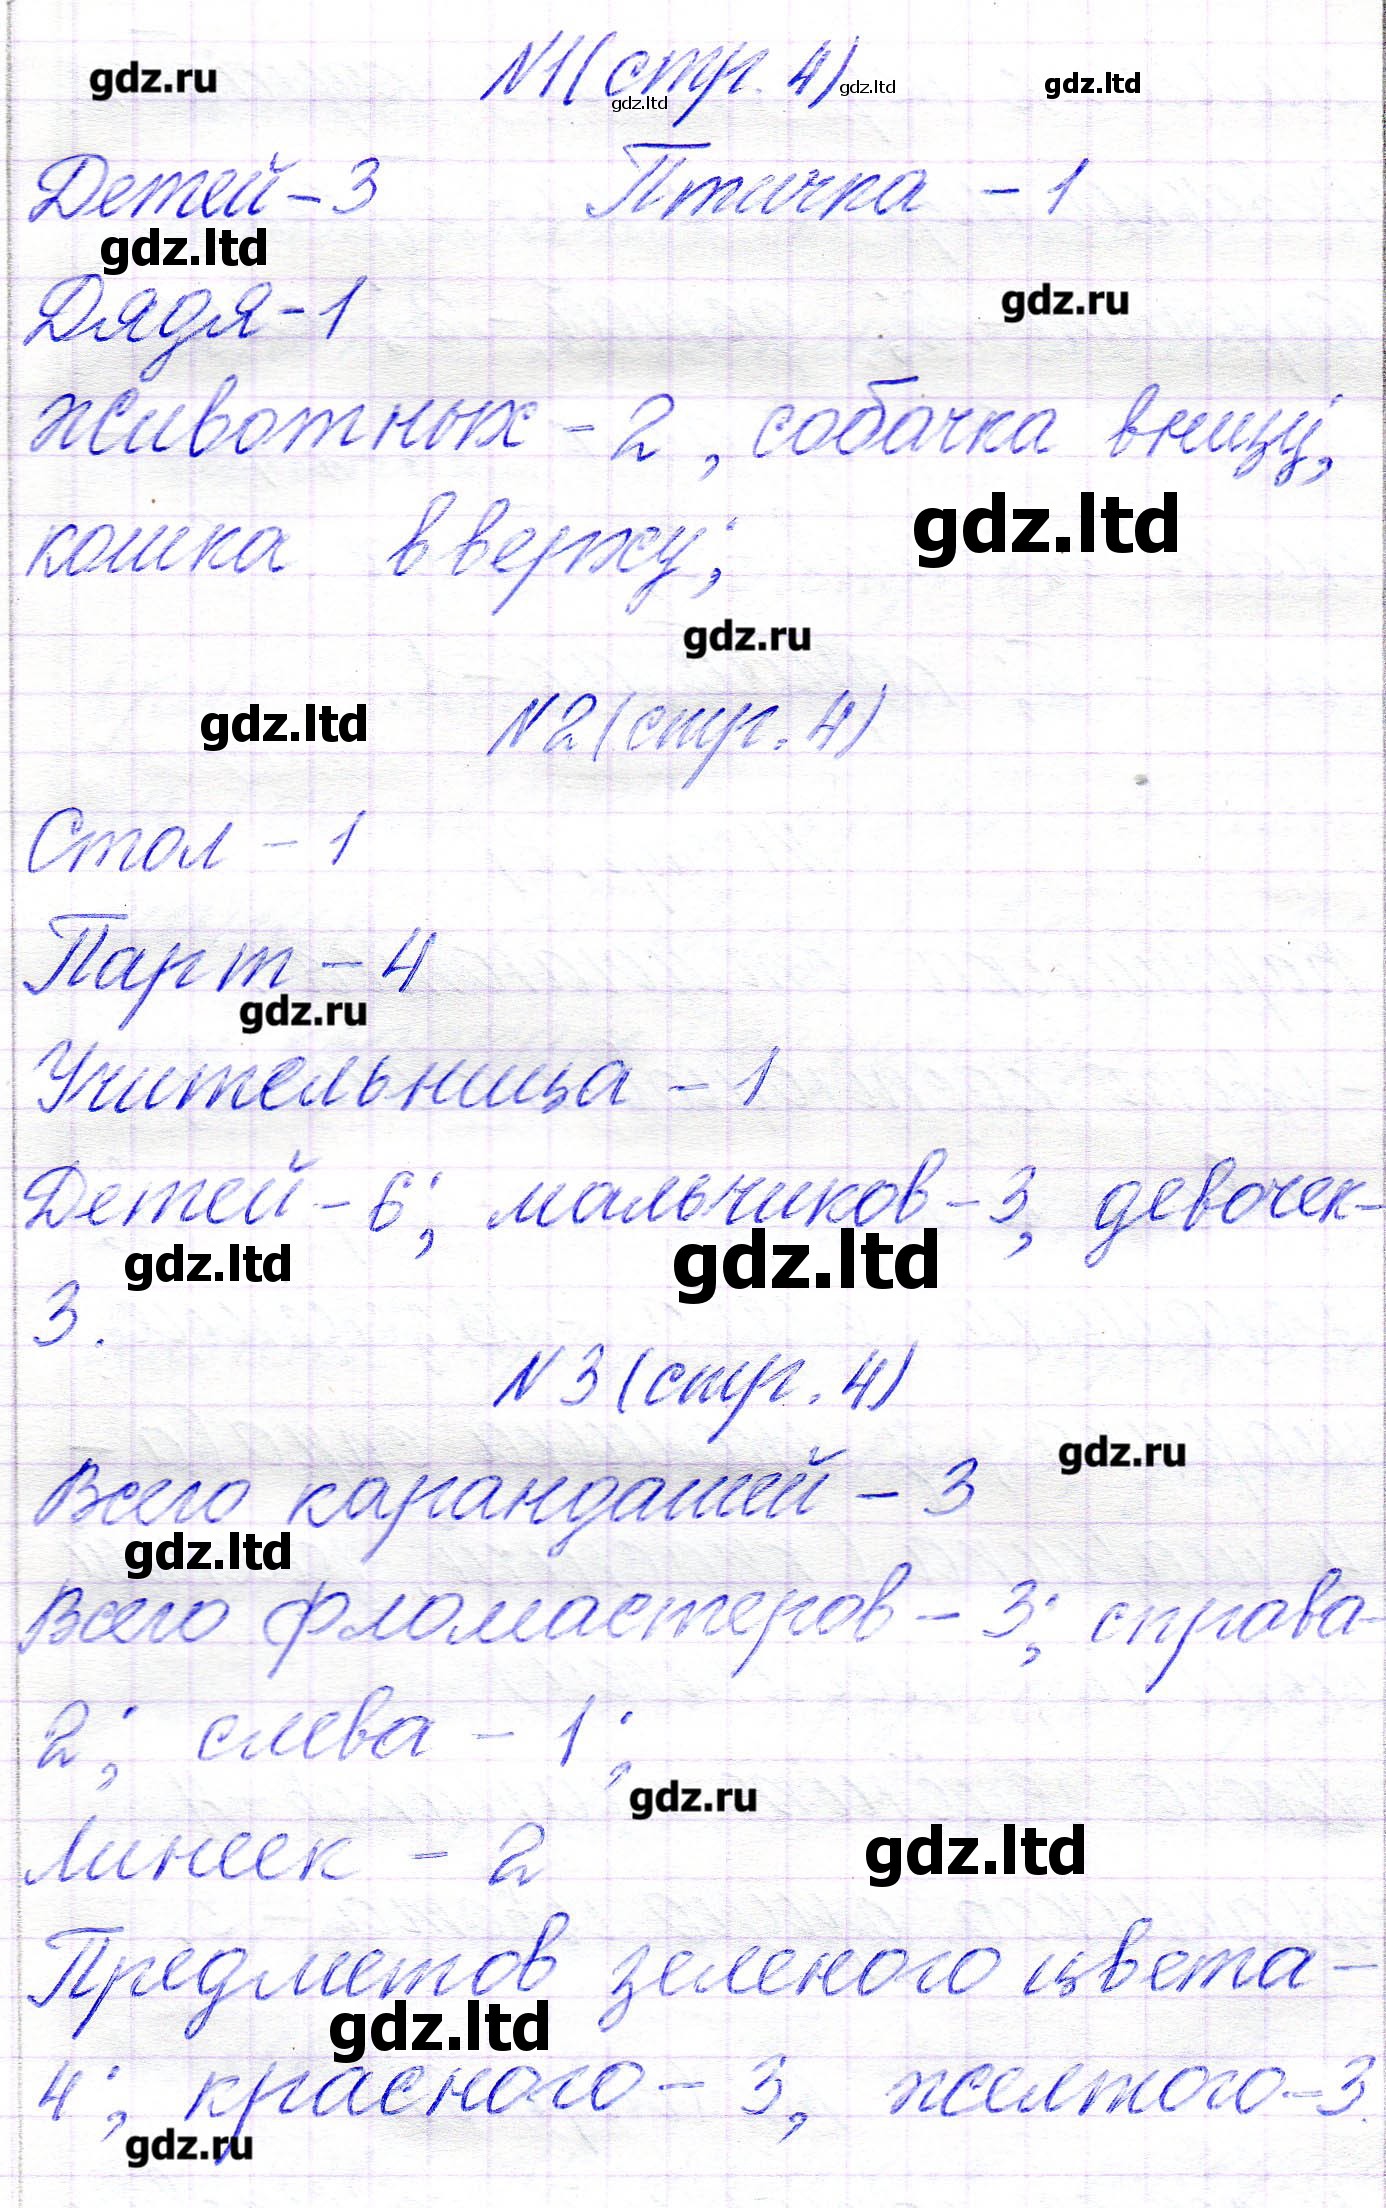 N1(стр. 4)
gdz.ru gdz.ltd gdz.ltd gdz.ltd
Детей-3 Птичка - 1
gdz.ltd
Дядя-1
gdz.ru
Животных - 2, собачка внизу;
кошка вверху;
gdz.ltd
gdz.ru
gdz.ltd
N2(стр. 4)
Стол - 1
Парт - 4
gdz.ru
Учительница - 1
Детей - 6; мальчиков - 3, девочек-
gdz.ltd gdz.ltd
3.
N3(стр. 4)
gdz.ru
Всего карандашей - 3
gdz.ltd
Всего фломастеров - 3; справа-
2; слева - 1;
gdz.ru
Линеек - 2
gdz.ltd
Предметов зеленого цвета -
gdz.ltd
4; красного - 3, желтого-3.
gdz.ru